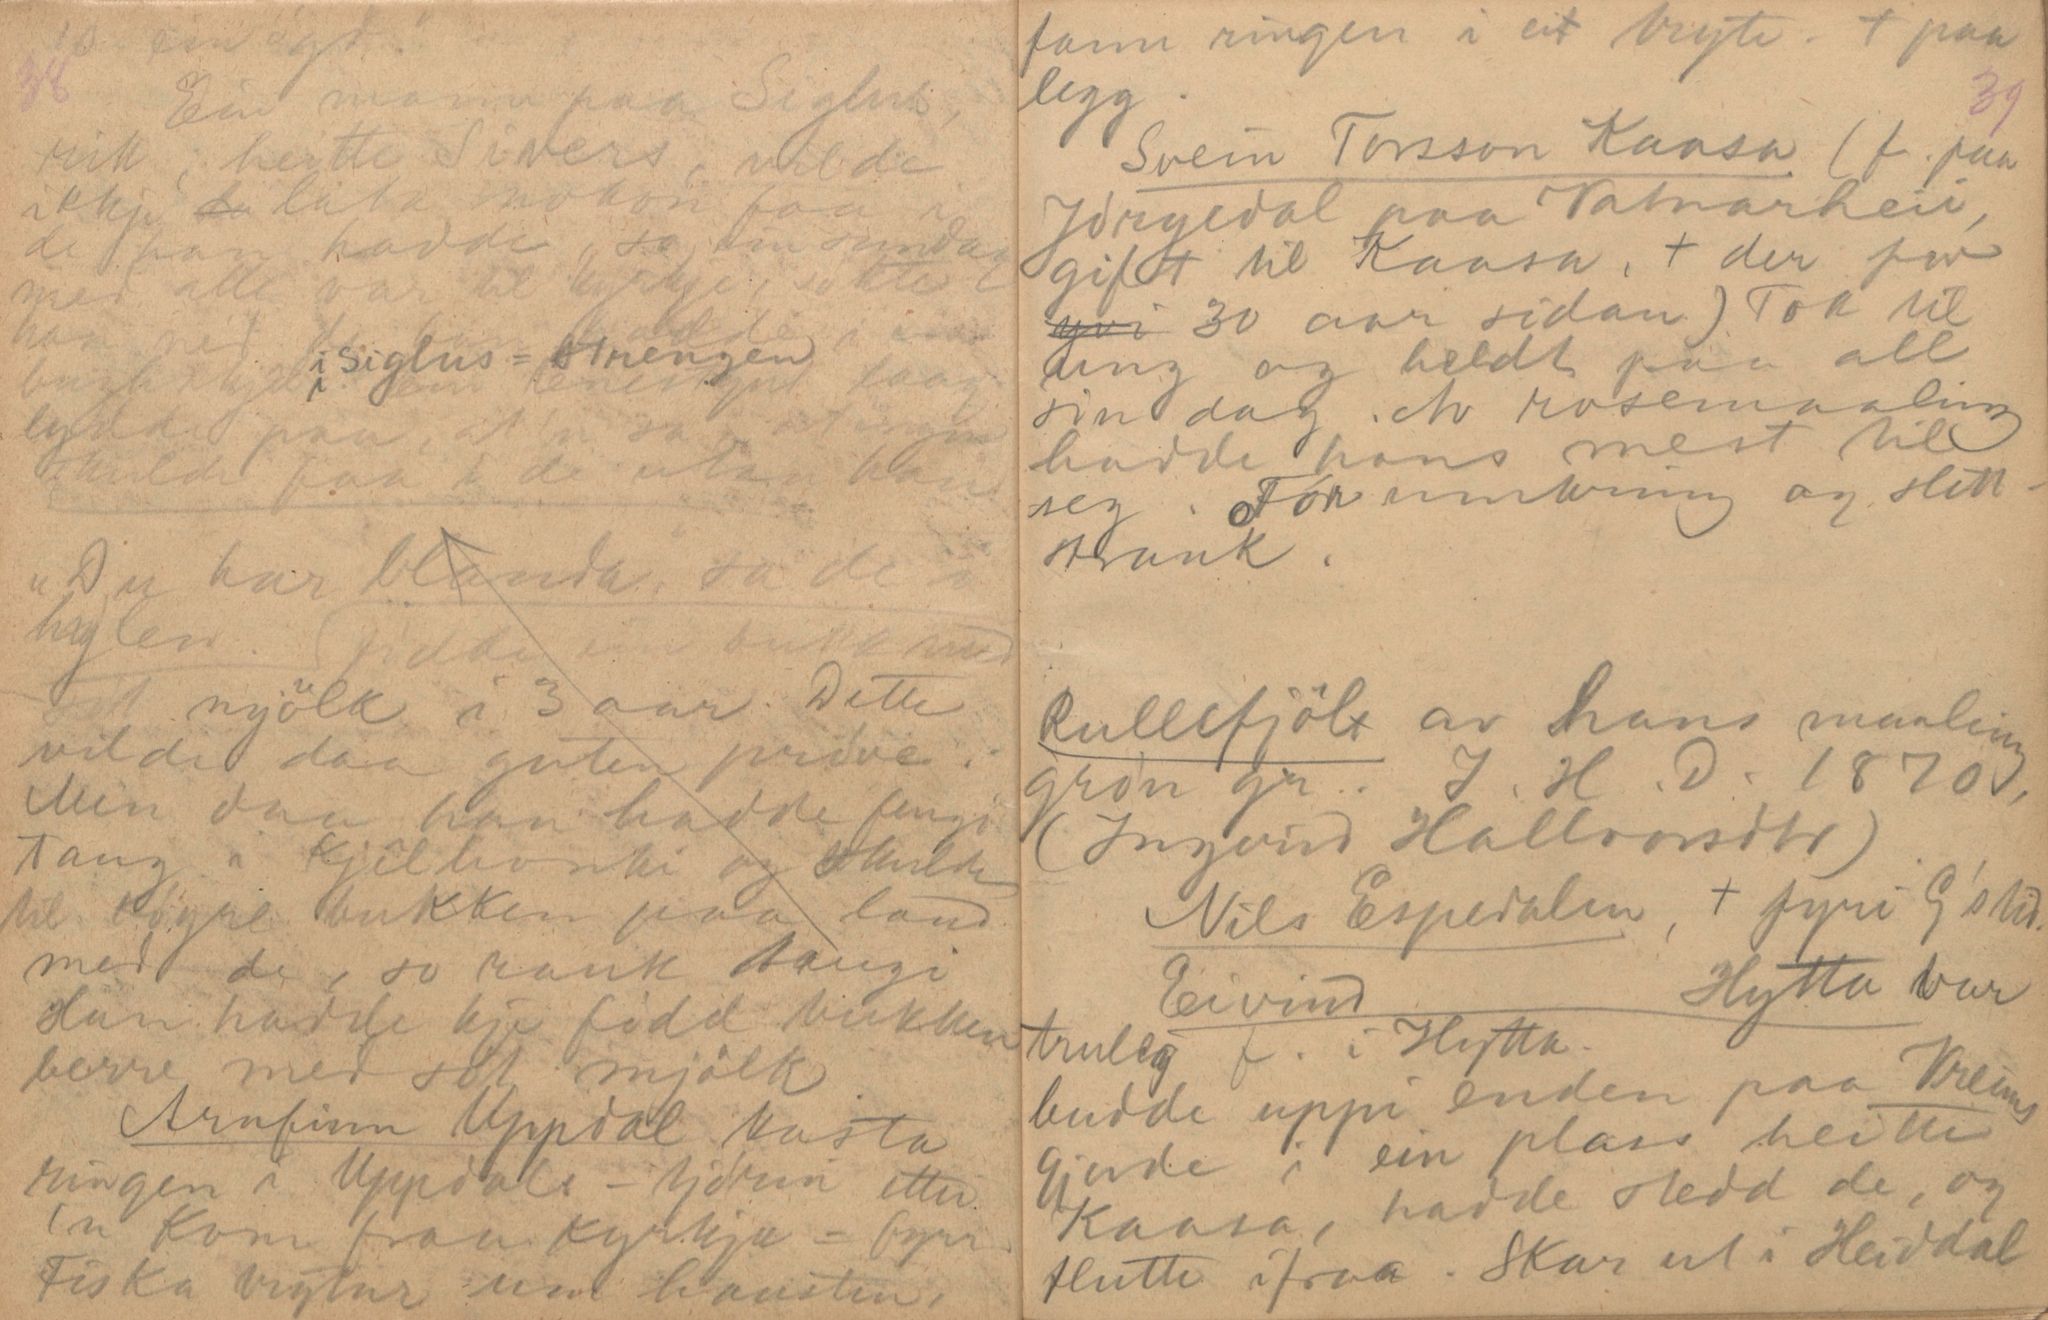 38
Ein mann paa Siglus,
rik, heitte Sivers, vilde
ikkje lata nokon faa i
de han hadde, so ein sundag
med alle var til kyrkje, sökte
han ned de han hadde i
i Siglus = strengen
lydde paa, at'n sa, at ingen
skulde faa i de utan han
"Du har blanda, sa de i
hylen. (födde ein bukk med
söt mjölk i 3 aar. Dette
vilde daa guten pröve.
Men daa han hadde fengi
taug i kjelhonki og skulde
til töyre bukken paa land
med de, so rauk taugi
Han hadde kje född bukken
berre med söt mjölk.
Arnfinn Uppdal kasta
ringen i Uppdals-tjörni etter
'n kom fraa kyrkja = fyrr
Fiska brytur um hausten,

fann ringen i eit bryte. + paa
legg.
39
Svein Torsson Kaasa (f. paa
Jörgedal paa Vatnarheii,
gift til Kaasa, + der for
yvi 30 aar sidan) Tok til
ung og heldt paa all
sin dag. Av rosemaaling
hadde hans mest til
seg. For umkring og slett-
strauk.
Rullefjöl av hans maaling
grön gr.. I. H. D. 1870,
(Ingvind Hallvorsdtr)
Nils Espedalen, + fyri G's tid.
Eivind Hytta var
truleg f. i Hytta.
budde uppi enden paa Vreims
gjerde i ein plass heitte
Kaasa, hadde stedd de, og
flutte ifraa. Skar ut i Heiddal